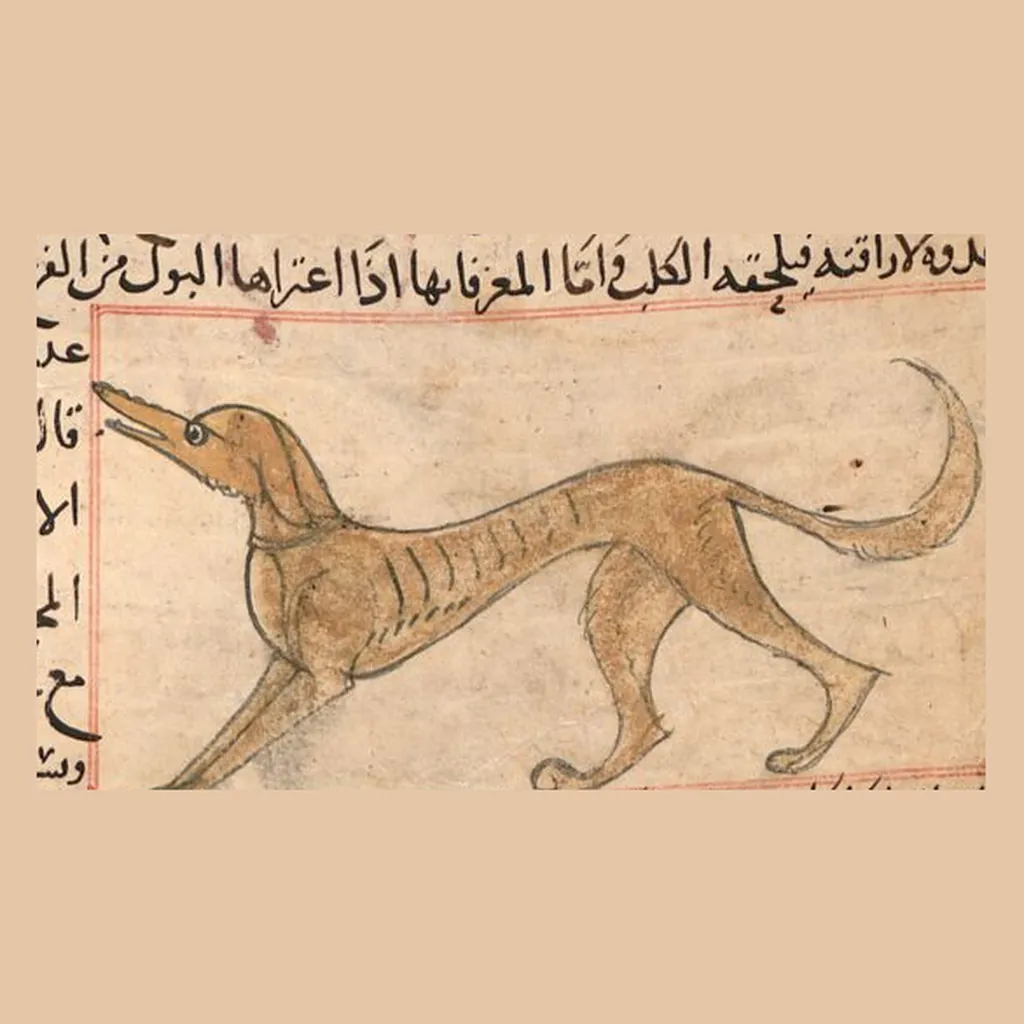 لاراقته فيلحقه الكلب وَامَّا المعز فانها اذَا اعتراها البول من الفز
عد
قال
الا
مع